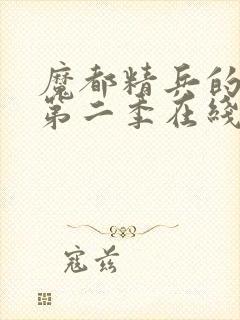 魔都精兵的
第二季在线
寇兹